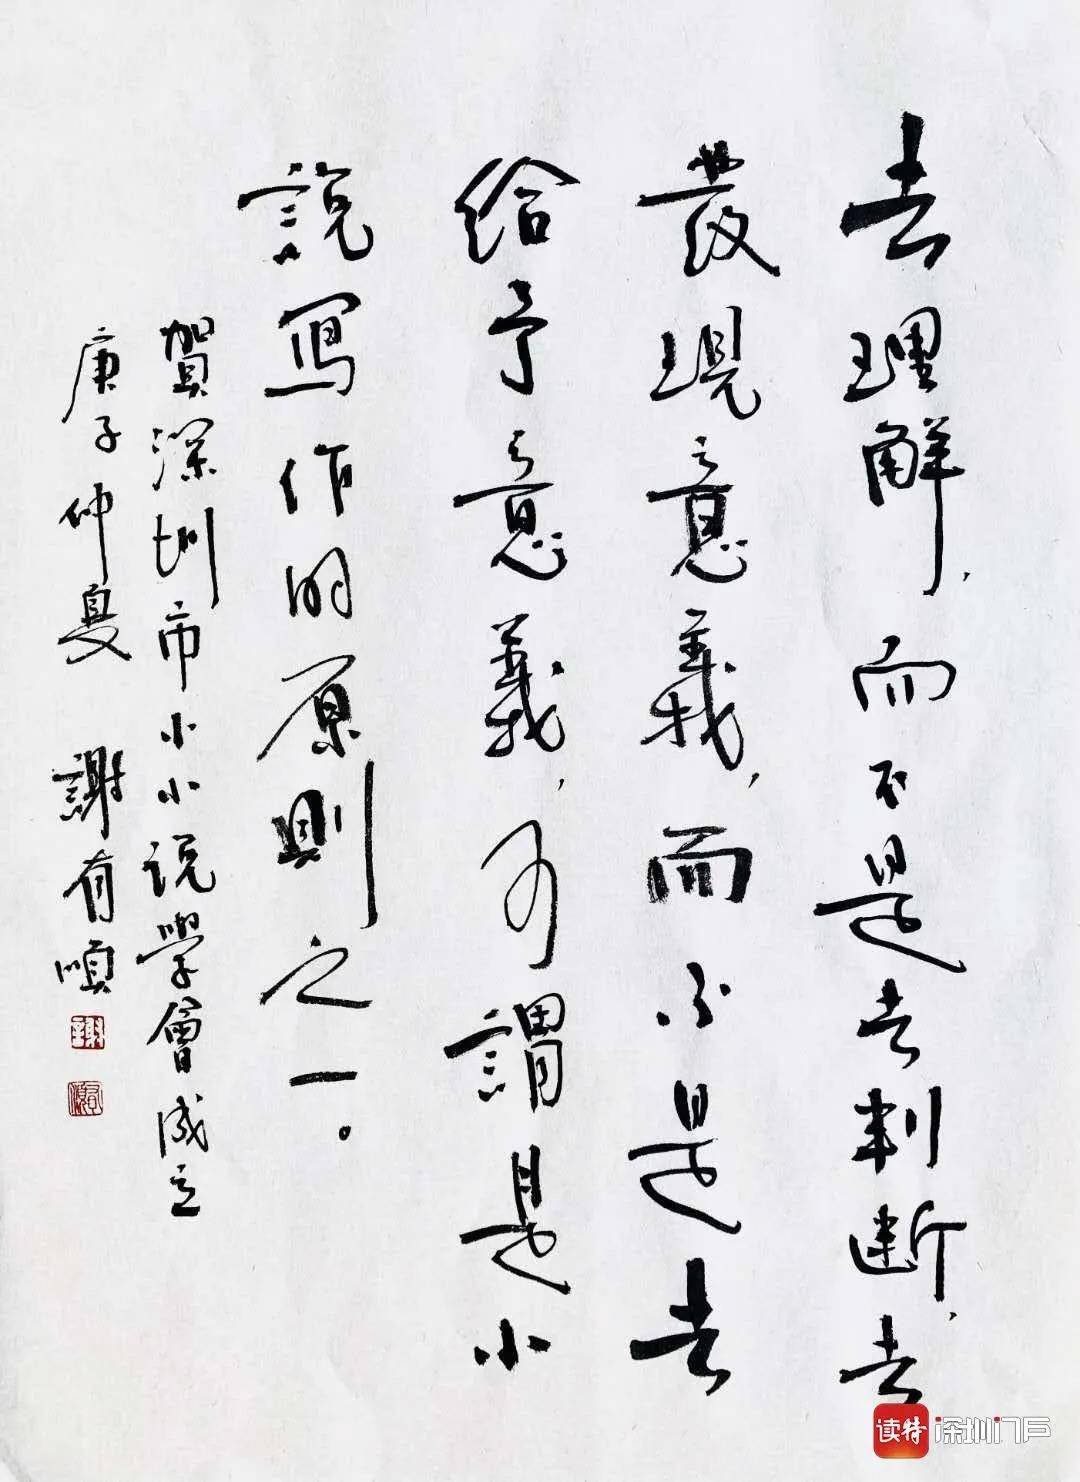 去理解，而不是去判断，去
發現意義，而不是去
給予意義，可謂是小
説寫作的原則之一。
賀深圳市小小说學會成立
庚子仲夏 謝有順
读特 深圳门户